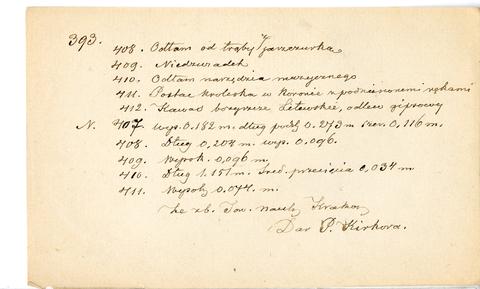 393.
408. Odłam od trąby Jaszczurka
409. Niedźwiadek
410. Odłam narzędzia muzycznego
411. Postać królewska w koronie z podniesionemi rękami
412. Kawał bożyszcze Litewskie, odlew gipsowy
N. 407 wys. 0.182 m. dług podst 0.273 m szer. 0,116 m.
408. Dług 0,204 m. wys. 0.096.
409. Wysok. 0,096 m.
410. Dług 1.151 m. Śred. przecięcia 0,034 m
411. Wysoky 0.074. m.
Ze zb. Tow. nauk. Krakow
Dar P. Kirkora.